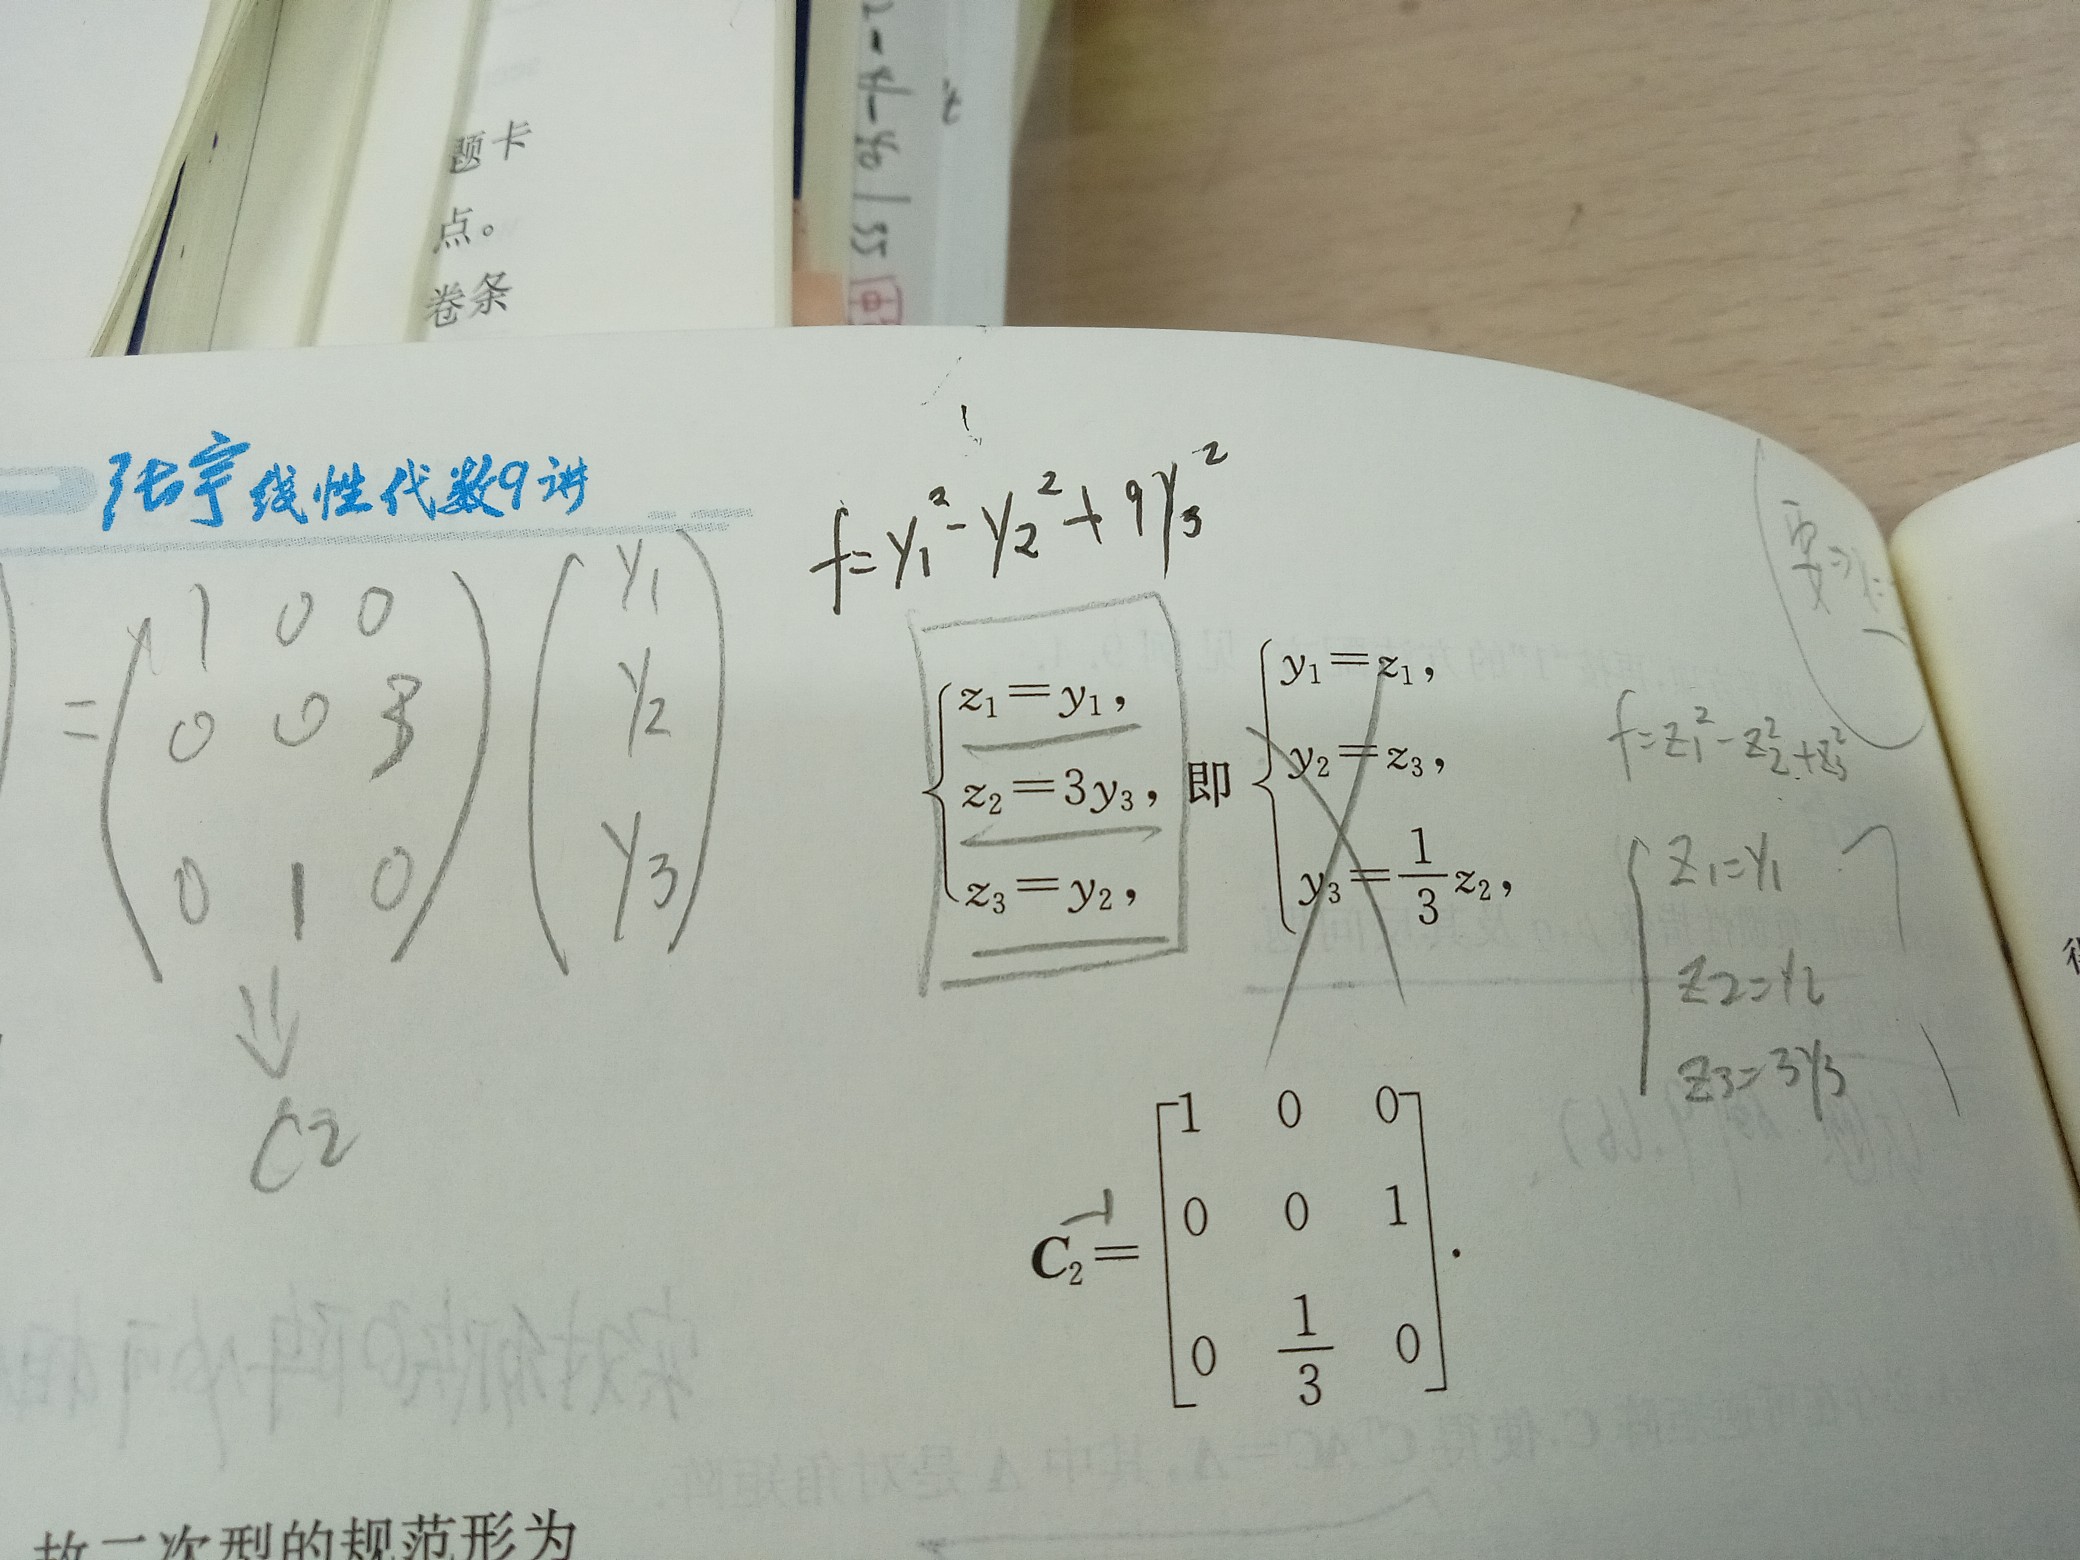 题卡
点。
卷条
张宇线性代数9讲
f=y₁²-y₂²+9y₃²
= (1 0 0
0 0 3
0 1 0) (y₁
y₂
y₃)
⇓
C2
{ z₁=y₁,
z₂=3y₃,
z₃=y₂,
即
{ y₁=z₁,
y₂=z₃,
y₃=1/3 z₂,
f=z₁²-z₂²+z₃²
{ z₁=y₁
z₂=y₂
z₃=3y₃
C₂⁻¹= [1 0 0
0 0 1
0 1/3 0].
故二次型的规范形为